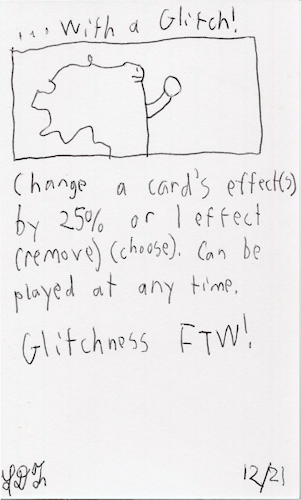 ... with a Glitch!
Change a card's effect(s)
by 25% or 1 effect
(remove) (choose). Can be
played at any time.
Glitchness FTW!
12/21